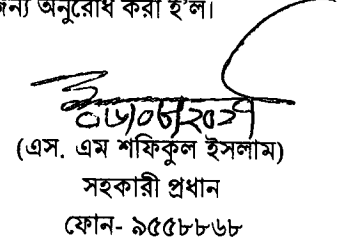 অনুরোধ করা হ'ল।
(এস. এম শফিকুল ইসলাম)
সহকারী প্রধান
ফোন- ৯৫৫৮৮৬৮